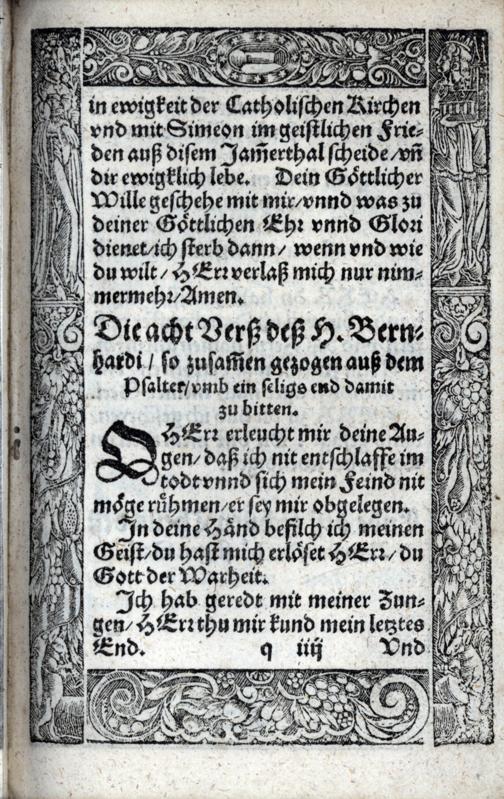 in ewigkeit der Catholischen Kirchen
vnd mit Simeon im geistlichen Frie-
den auß disem Jam̃erthal scheide/vñ
dir ewigklich lebe. Dein Göttlicher
Wille geschehe mit mir/vnnd was zu
deiner Göttlichen Ehr vnnd Glori
dienet/ich sterb dann/ wenn vnd wie
du wilt/ HErr verlaß mich nur nim-
mermehr/Amen.
Die acht Verß deß H. Bern-
hardi/ so zusam̃en gezogen auß dem
Psalter/vmb ein seligs end damit
zu bitten.
O HErr erleucht mir deine Au-
gen/daß ich nit entschlaffe im
todt vnnd sich mein Feind nit
möge rühmen/er sey mir obgelegen.
In deine Händ befilch ich meinen
Geist/du hast mich erlöset HErr/du
Gott der Warheit.
Ich hab geredt mit meiner Zun-
gen/HErr thu mir kund mein letztes
End. q iiij Vnd